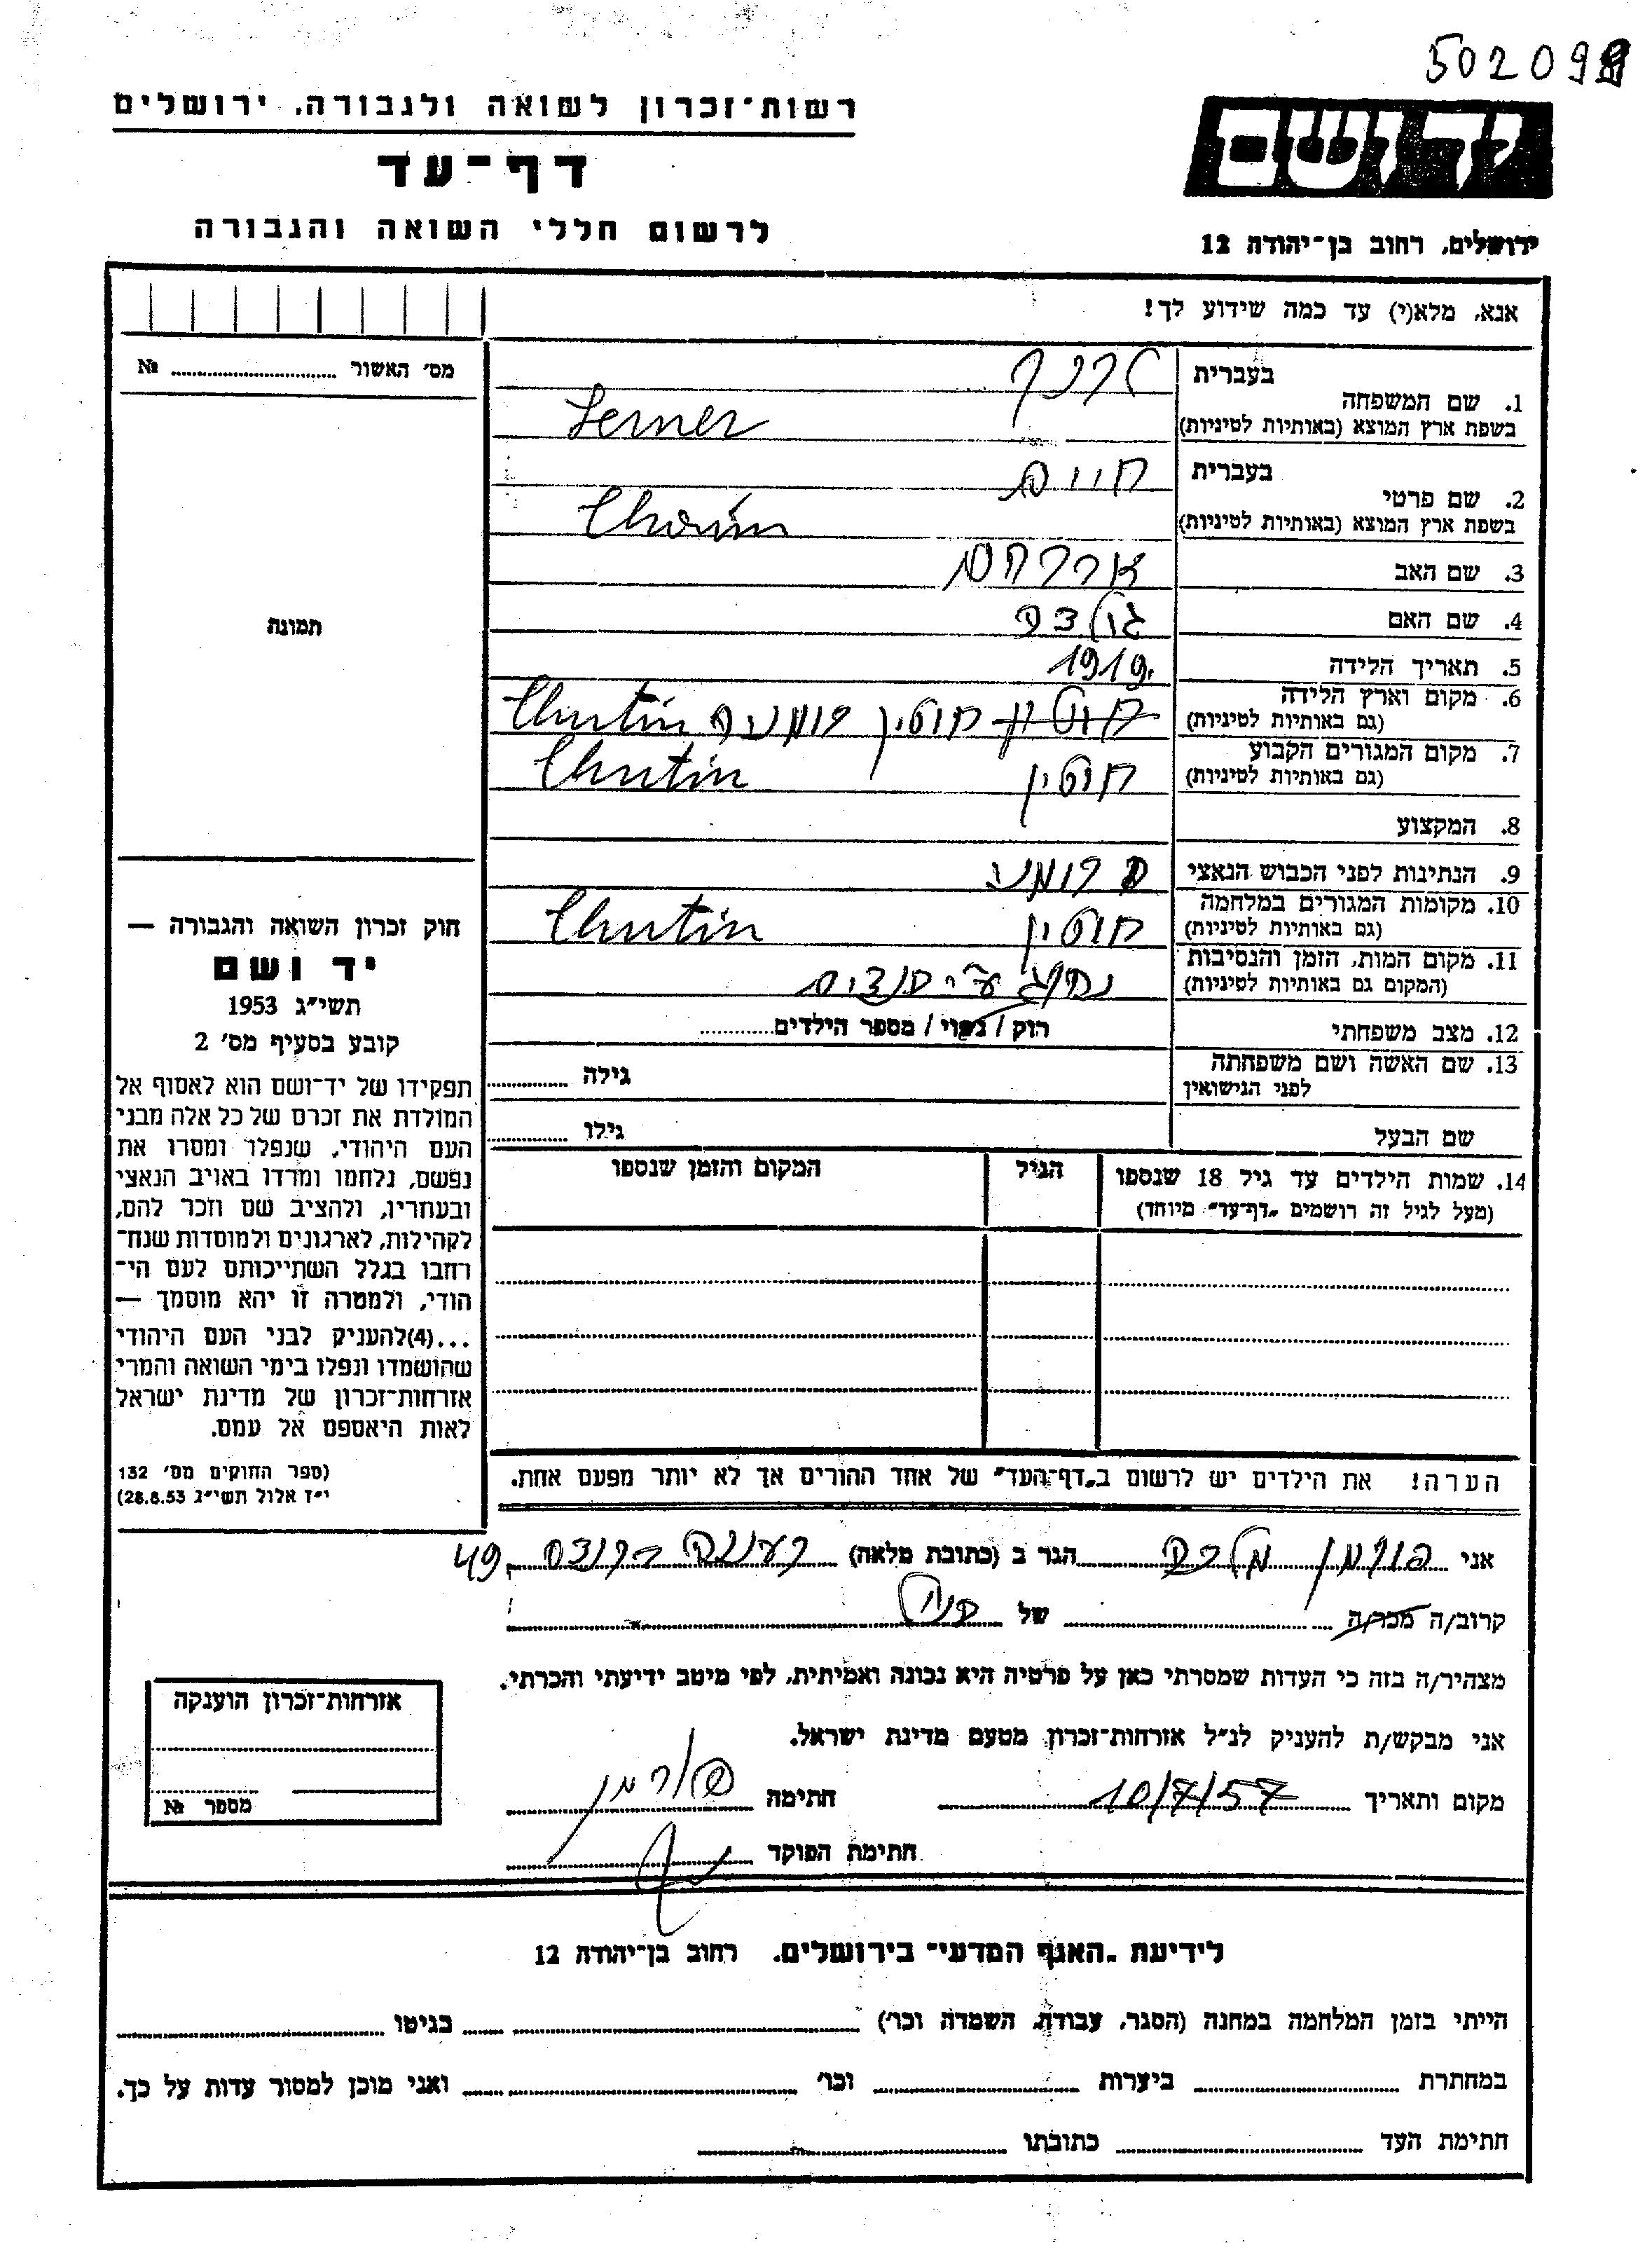 502098
רשות־זכרון לשואה ולגבורה, ירושלים
דף־עד
לרשום חללי השואה והגבורה
יד ושם
ירושלים, רחוב בן־יהודה 12
אנא, מלא(י) עד כמה שידוע לך!
מס' האשור № 
תמונה
1. שם המשפחה
בעברית לרנר
בשפת ארץ המוצא (באותיות לטיניות) Lerner
2. שם פרטי
בעברית חיים
בשפת ארץ המוצא (באותיות לטיניות) Chaim
3. שם האב אברהם
4. שם האם גולדה
5. תאריך הלידה 1919
6. מקום וארץ הלידה
(גם באותיות לטיניות) חוטין חוטין רומניה Chutin
7. מקום המגורים הקבוע
(גם באותיות לטיניות) חוטין Chutin
8. המקצוע
9. הנתינות לפני הכבוש הנאצי רומני
10. מקומות המגורים במלחמה
(גם באותיות לטיניות) חוטין Chutin
11. מקום המות, הזמן והנסיבות
(המקום גם באותיות לטיניות) נהרג ע"י
12. מצב משפחתי רוק / נשוי / מספר הילדים
13. שם האשה ושם משפחתה גילה
לפני הנישואין
שם הבעל גילו
14. שמות הילדים עד גיל 18 שנספו הגיל המקום והזמן שנספו
(מעל לגיל זה רושמים „דף־עד" מיוחד)
הערה! את הילדים יש לרשום ב„דף־העד" של אחד ההורים אך לא יותר מפעם אחת.
חוק זכרון השואה והגבורה —
יד ושם
תשי"ג 1953
קובע בסעיף מס' 2
תפקידו של יד־ושם הוא לאסוף אל
המולדת את זכרם של כל אלה מבני
העם היהודי, שנפלו ומסרו את
נפשם, נלחמו ומרדו באויב הנאצי
ובעוזריו, ולהציב שם וזכר להם,
לקהילות, לארגונים ולמוסדות שנח־
רחבו בגלל השתייכותם לעם הי־
הודי, ולמטרה זו יהא מוסמך —
...(4)להעניק לבני העם היהודי
שהושמדו ונפלו בימי השואה והמרי
אזרחות־זכרון של מדינת ישראל
לאות היאספם אל עמם.
(ספר החוקים מס' 132
י"ז אלול תשי"ג 28.8.53)
אני פורמן מלכה הגר ב (כתובת מלאה) רעננה 49
קרוב/ה מכר/ה של
מצהיר/ה בזה כי העדות שמסרתי כאן על פרטיה היא נכונה ואמיתית, לפי מיטב ידיעתי והכרתי.
אני מבקש/ת להעניק לנ"ל אזרחות־זכרון מטעם מדינת ישראל.
מקום ותאריך 10/7/57 חתימה פורמן
חתימת הפוקד
אזרחות־זכרון הוענקה
מספר №
לידיעת „האגף המדעי" בירושלים, רחוב בן־יהודה 12
הייתי בזמן המלחמה במחנה (הסגר, עבודה, השמדה וכו') בגיטו
במחתרת ביערות וכו' ואני מוכן למסור עדות על כך.
חתימת העד כתובתו